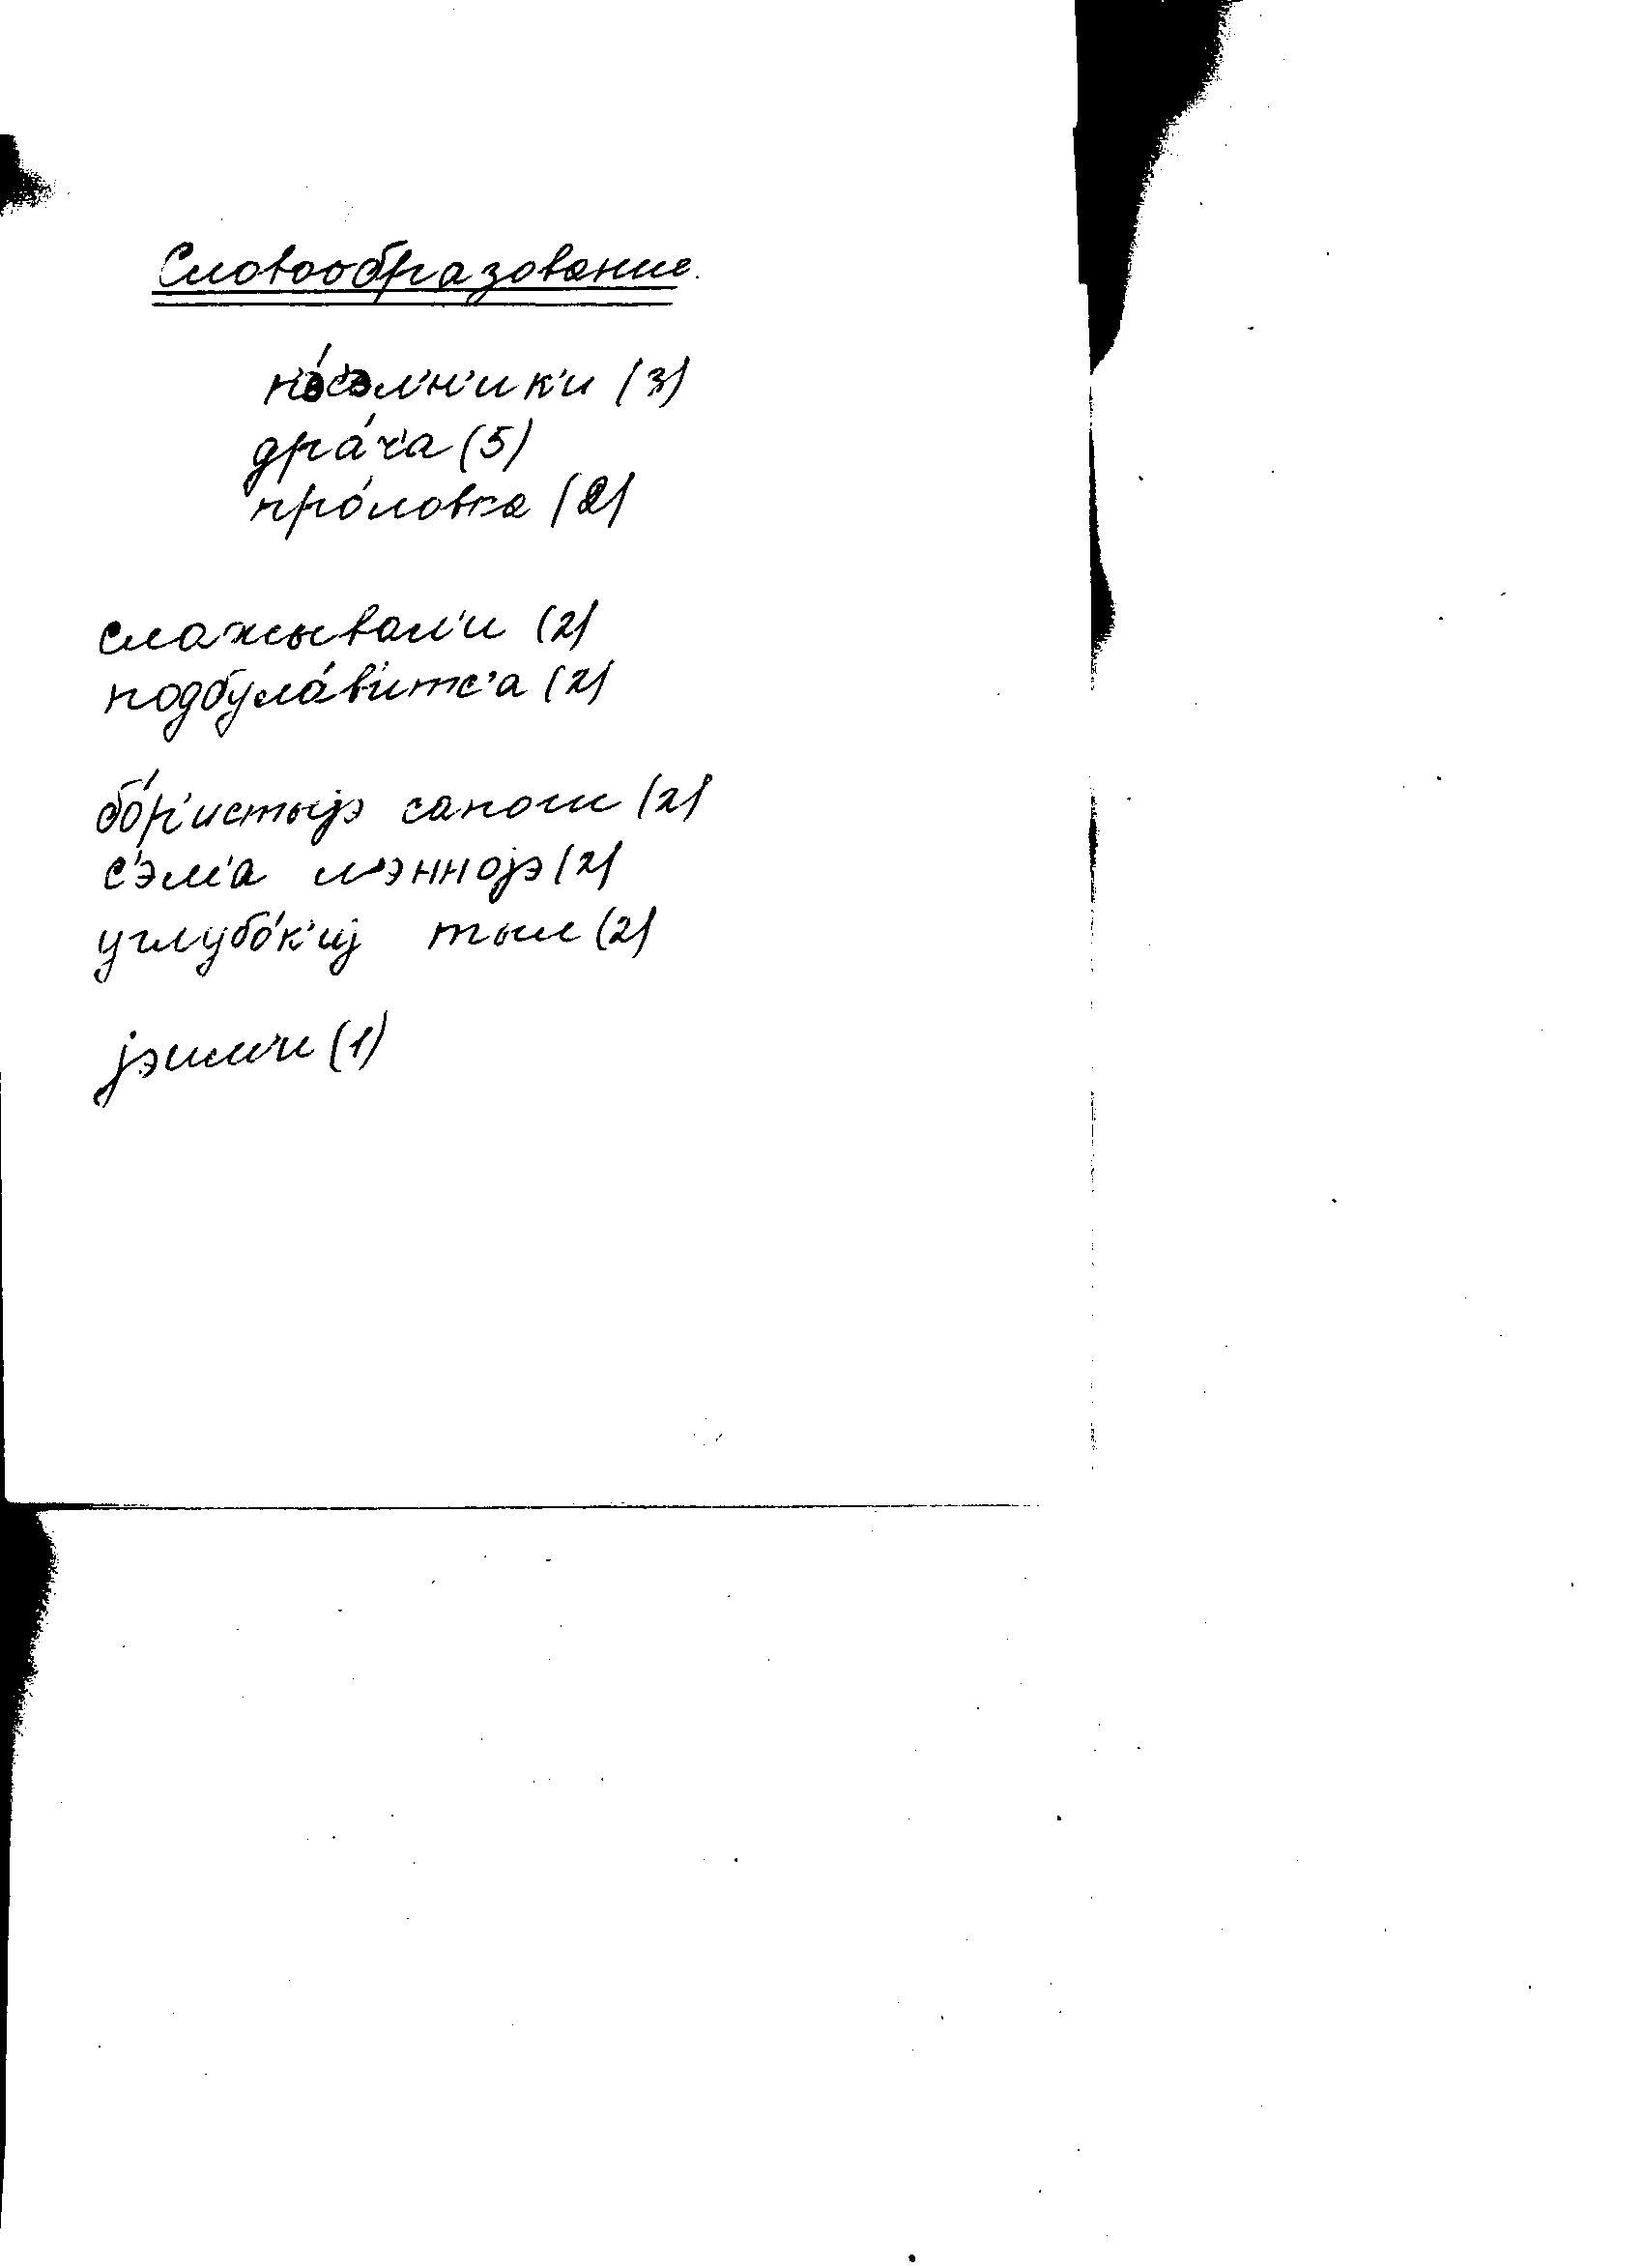 Словообразование.
по́сэл'н'ик'и (3)
дра́ч'а (5)
про́ловка (2)
слажывал'и (2)
подбула́в'итс'а (2)
бо́р'истыjэ сапоги (2)
с'эм'а л'эннојэ (2)
углубо́к'иj тыл (2)